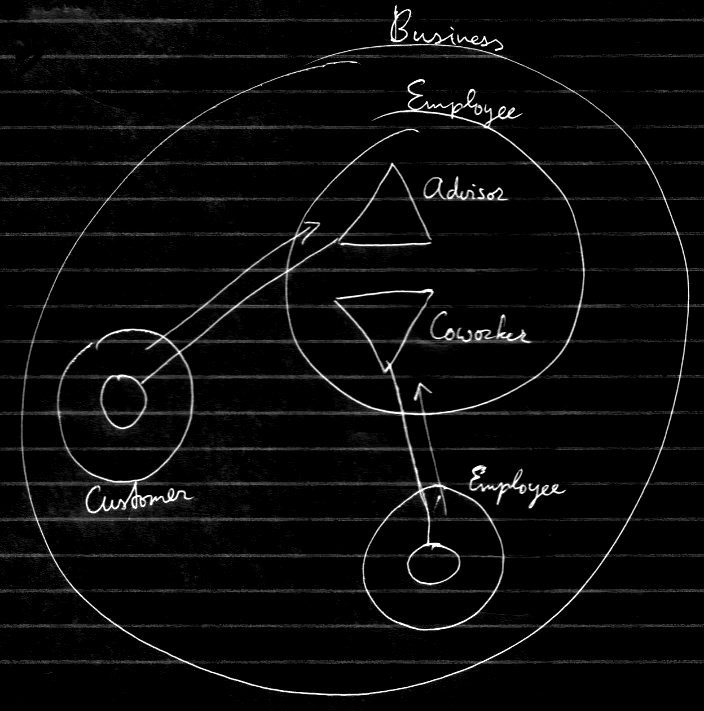 Business
Employee
Advisor
Coworker
Customer
Employee